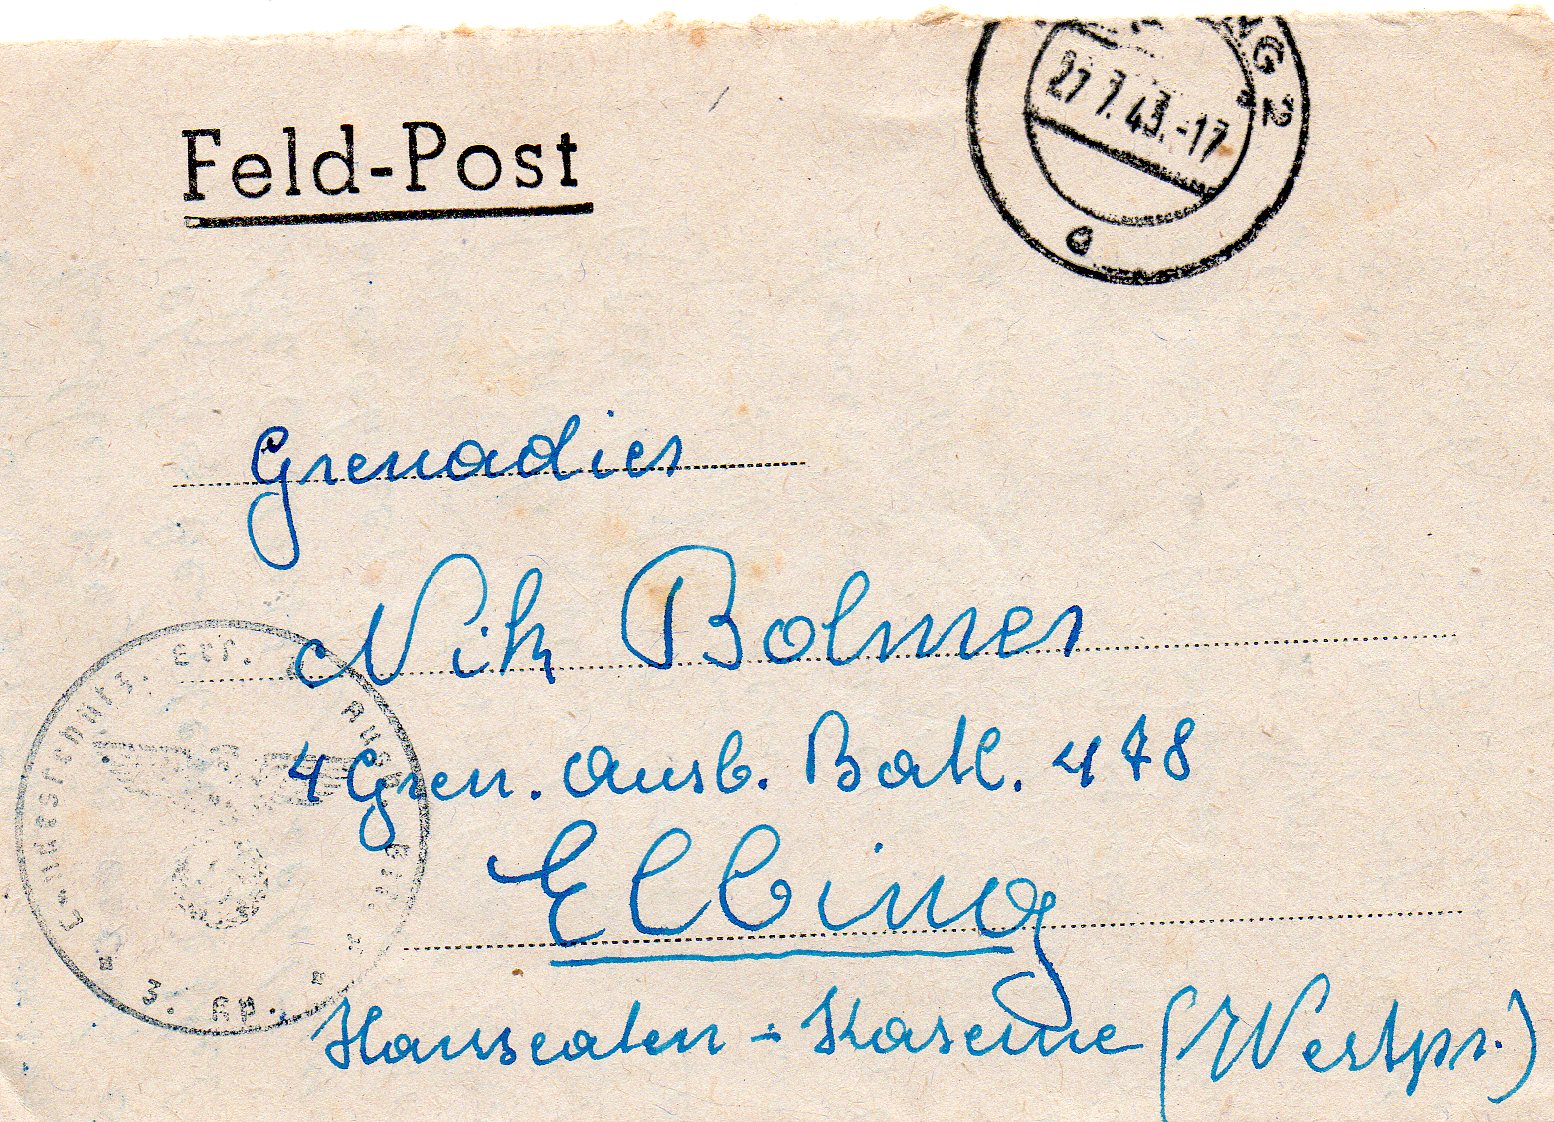 Feld-Post
G 2
27 7.43.-17
a
Grenadier
Nik Bolmer
4 Gren. Ausb. Batl. 478
Elbing
Hanseaten-Kaserne (Westpr.)
Landesschütz. Ers. u. Ausb.
3. Kp.